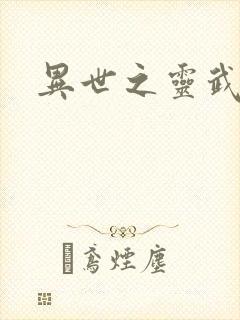 異世之靈武
鳶煙塵